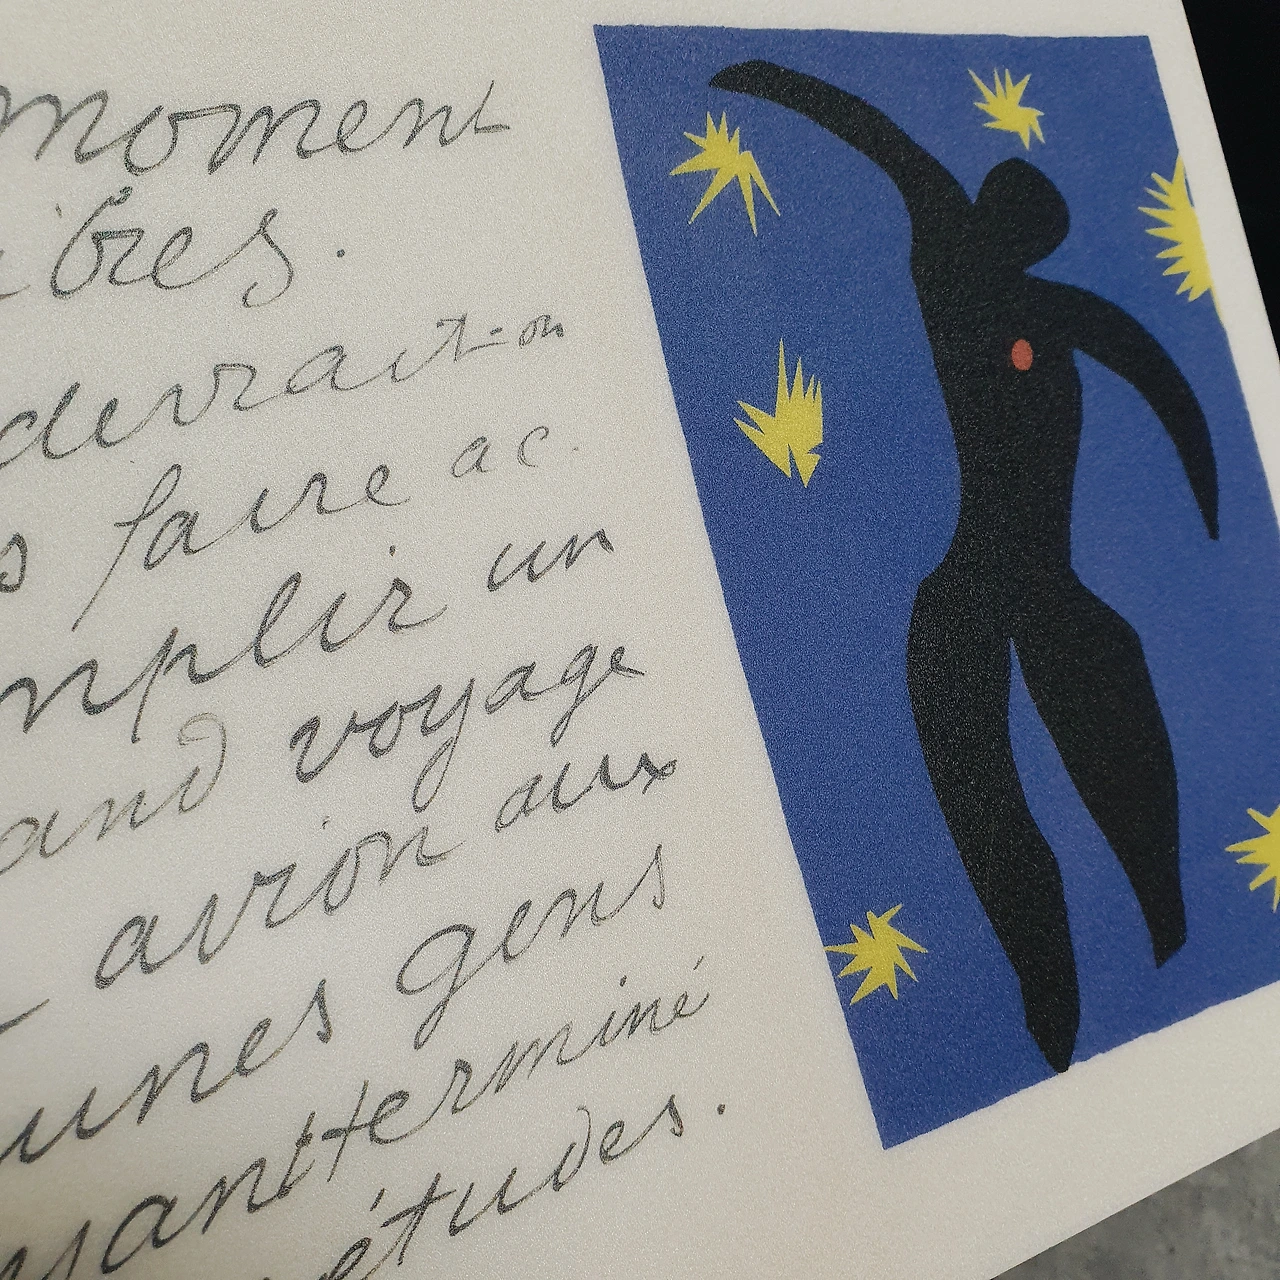 moment
ibres.
devrait-on
s faire ac.
mplir un
and voyage
avion aux
unes gens
yant terminé
études.